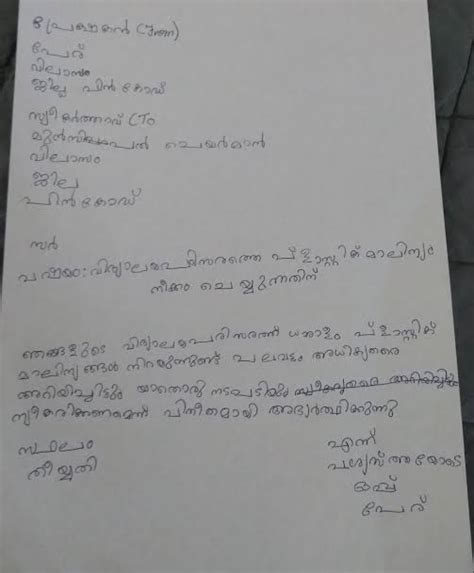 പ്രേക്ഷകൻ
പേര്
വിലാസം
ജില്ല പിൻകോഡ്
സ്വീകർത്താവ് (To
മുൻസിപ്പൽ ചെയർമാൻ
വിലാസം
ജില്ല
പിൻകോഡ്
സർ
വിഷയം: വിദ്യാലയപരിസരത്തെ പ്ളാസ്റ്റിക് മാലിന്യം
നീക്കം ചെയ്യുന്നതിന്
ഞങ്ങളുടെ വിദ്യാലയപരിസരത്ത് ധാരാളം പ്ളാസ്റ്റിക്
മാലിന്യങ്ങൾ നിറയുന്നുണ്ട് പലവട്ടം അധികൃതരെ
അറിയിച്ചിട്ടും യാതൊരു നടപടിയും
സ്വീകരിക്കണമെന്ന് വിനീതമായി അഭ്യർത്ഥിക്കുന്നു
സ്ഥലം
തീയ്യതി
എന്ന്
വിശ്വസ്തതയോടെ
ഒപ്പ്
പേര്